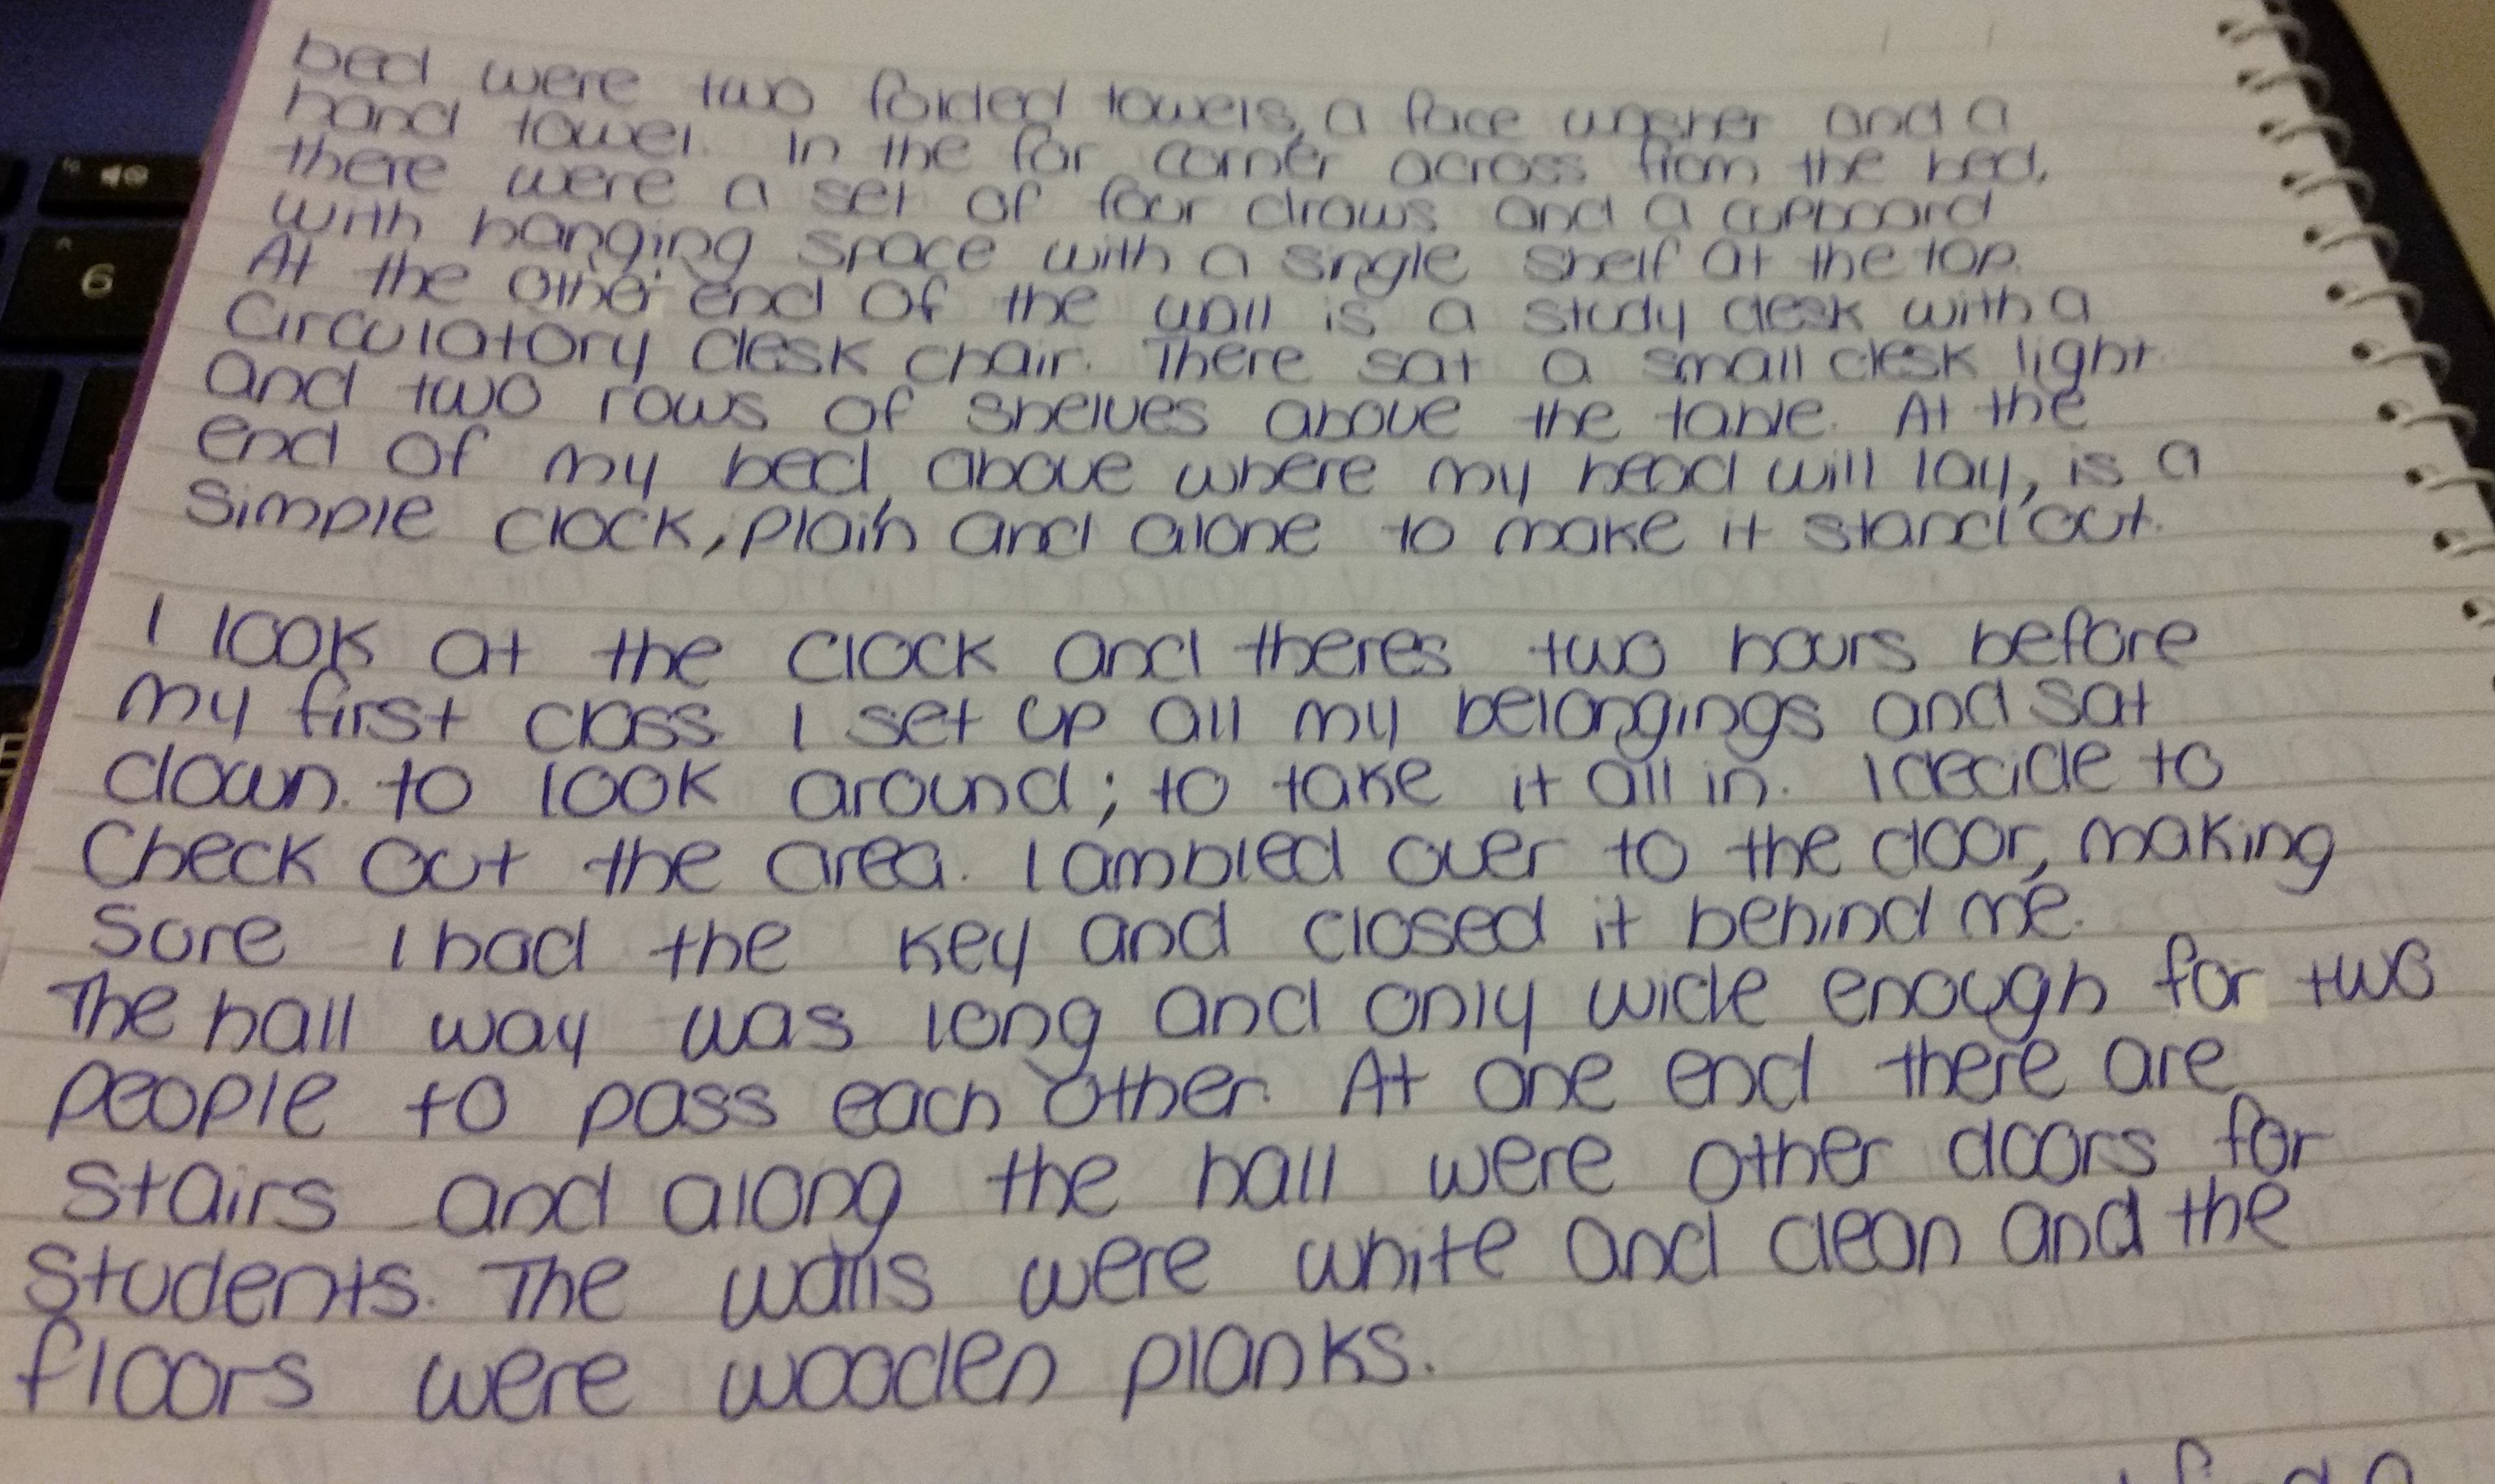 bed were two folded towels, a face washer and a
hand towel. In the far corner across from the bed,
there were a set of four draws and a cupboard
with hanging space with a single shelf at the top.
At the other end of the wall is a study desk with a
Circulatory desk chair. There sat a small desk light
and two rows of shelves above the table. At the
end of my bed, above where my head will lay, is a
simple clock, plain and alone to make it stand out.
I look at the clock and theres two hours before
my first class. I set up all my belongings and sat
down. to look around; to take it all in. I decide to
Check out the area. I ambled over to the door, making
sure I had the key and closed it behind me.
The hall way was long and only wide enough for two
people to pass each other. At one end there are
stairs and along the hall were other doors for
students. The walls were white and clean and the
floors were wooden planks.
6